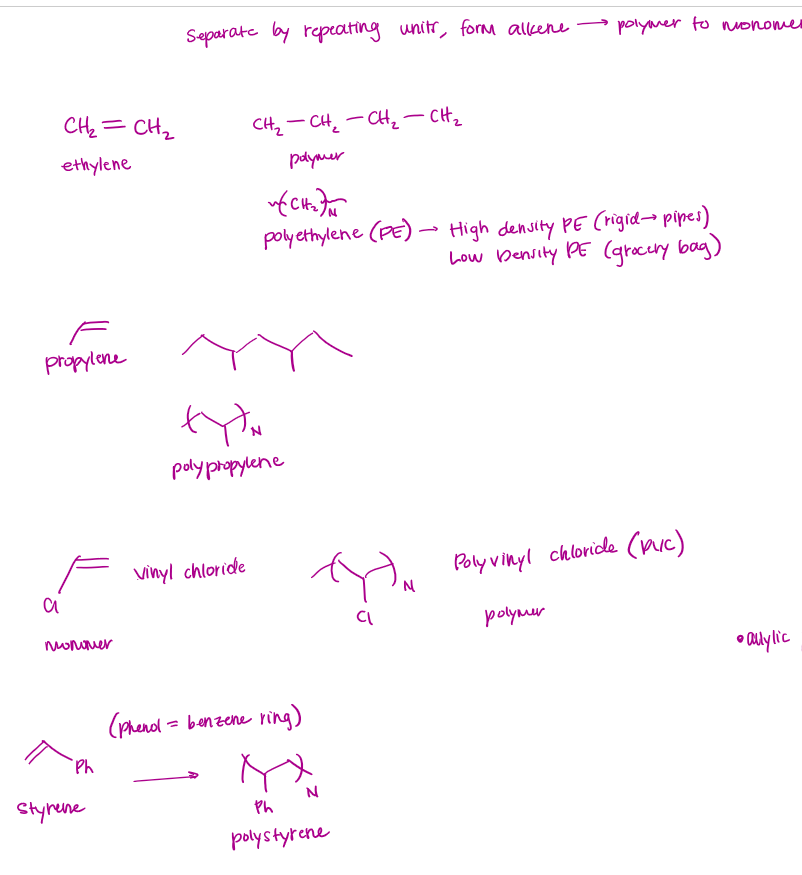 Separate by repeating units, form alkene → polymer to monomer
CH₂ = CH₂
CH₂ — CH₂ — CH₂ — CH₂
ethylene
polymer
(CH₂)N
polyethylene (PE) → High density PE (rigid → pipes)
Low Density PE (grocery bag)
propylene
N
polypropylene
vinyl chloride
Polyvinyl chloride (PVC)
Cl
N
Cl
polymer
monomer
• allylic
(phenol = benzene ring)
Ph
N
styrene
Ph
polystyrene